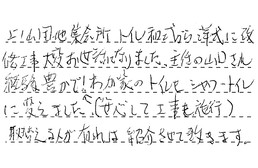 とし山団地集会所 トイレ和式から洋式に改
修工事大変お世話になりました。主任の山口さん
経験豊かで!わが家のトイレもシャワートイレ
に変えました。(安心して工事を施行)
取替える人が有れば紹介させて頂きます。